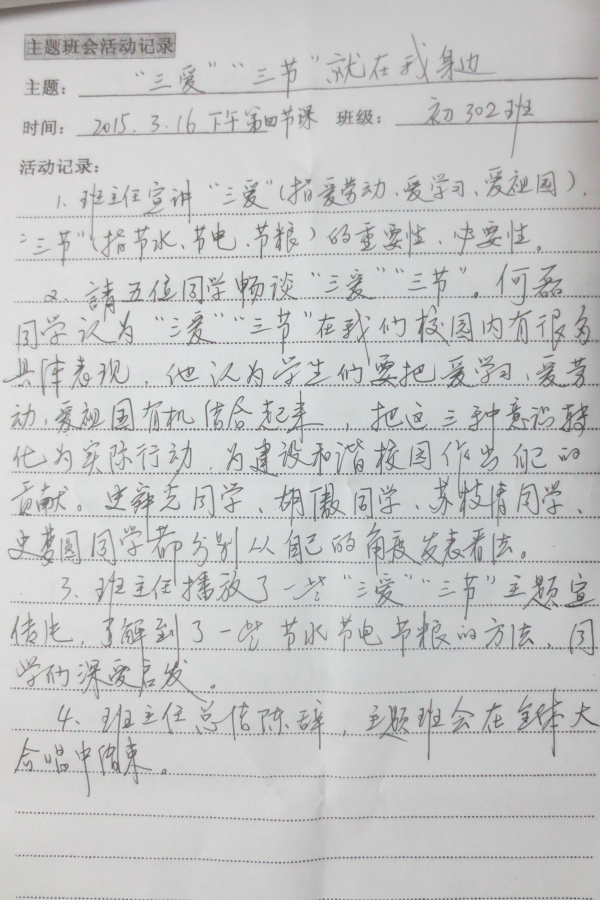 主题班会活动记录
主题：“三爱”“三节”就在我身边
时间：2015.3.16下午第四节课 班级：初302班
活动记录：
1、班主任宣讲“三爱”（指爱劳动、爱学习、爱祖国），
“三节”（指节水、节电、节粮）的重要性、必要性。
2、請五位同学畅谈“三爱”“三节”。何磊
同学认为“三爱”“三节”在我们校园内有很多
具体表现，他认为学生们要把爱学习、爱劳
动、爱祖国有机结合起来，把这三种意识转
化为实际行动，为建设和谐校园作出自己的
贡献。史 同学、胡傲同学、苏 倩同学、
史梦圆同学都分别从自己的角度发表看法。
3、班主任播放了一些“三爱”“三节”主题宣
传片，了解到了一些节水节电节粮的方法，同
学们深受启发。
4、班主任总结陈辞，主题班会在全体大
合唱中结束。